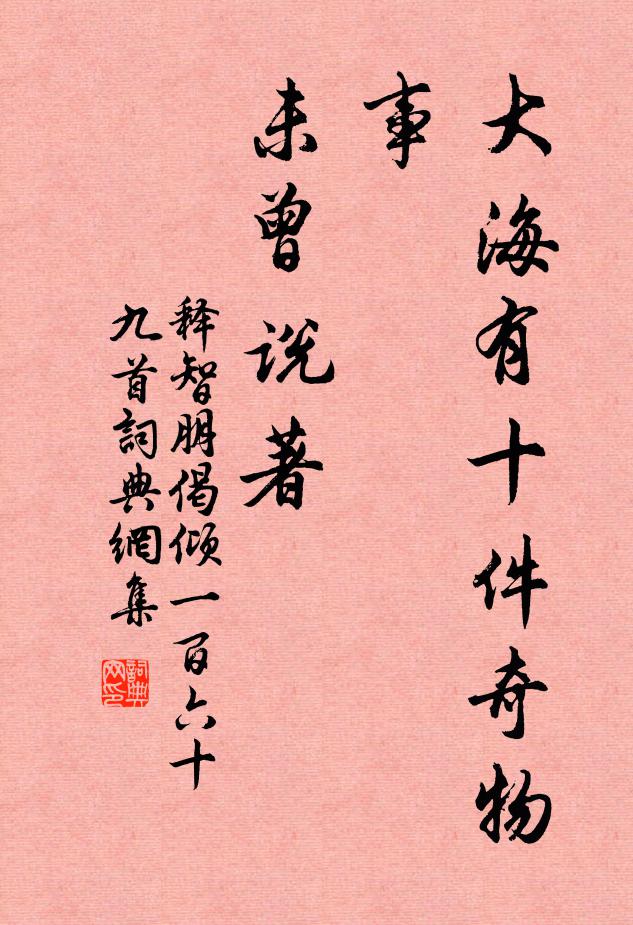 大海有十件奇物
事
未曾说著
释智朋偈倾一百六十
九首詞典網集
詞典
网印